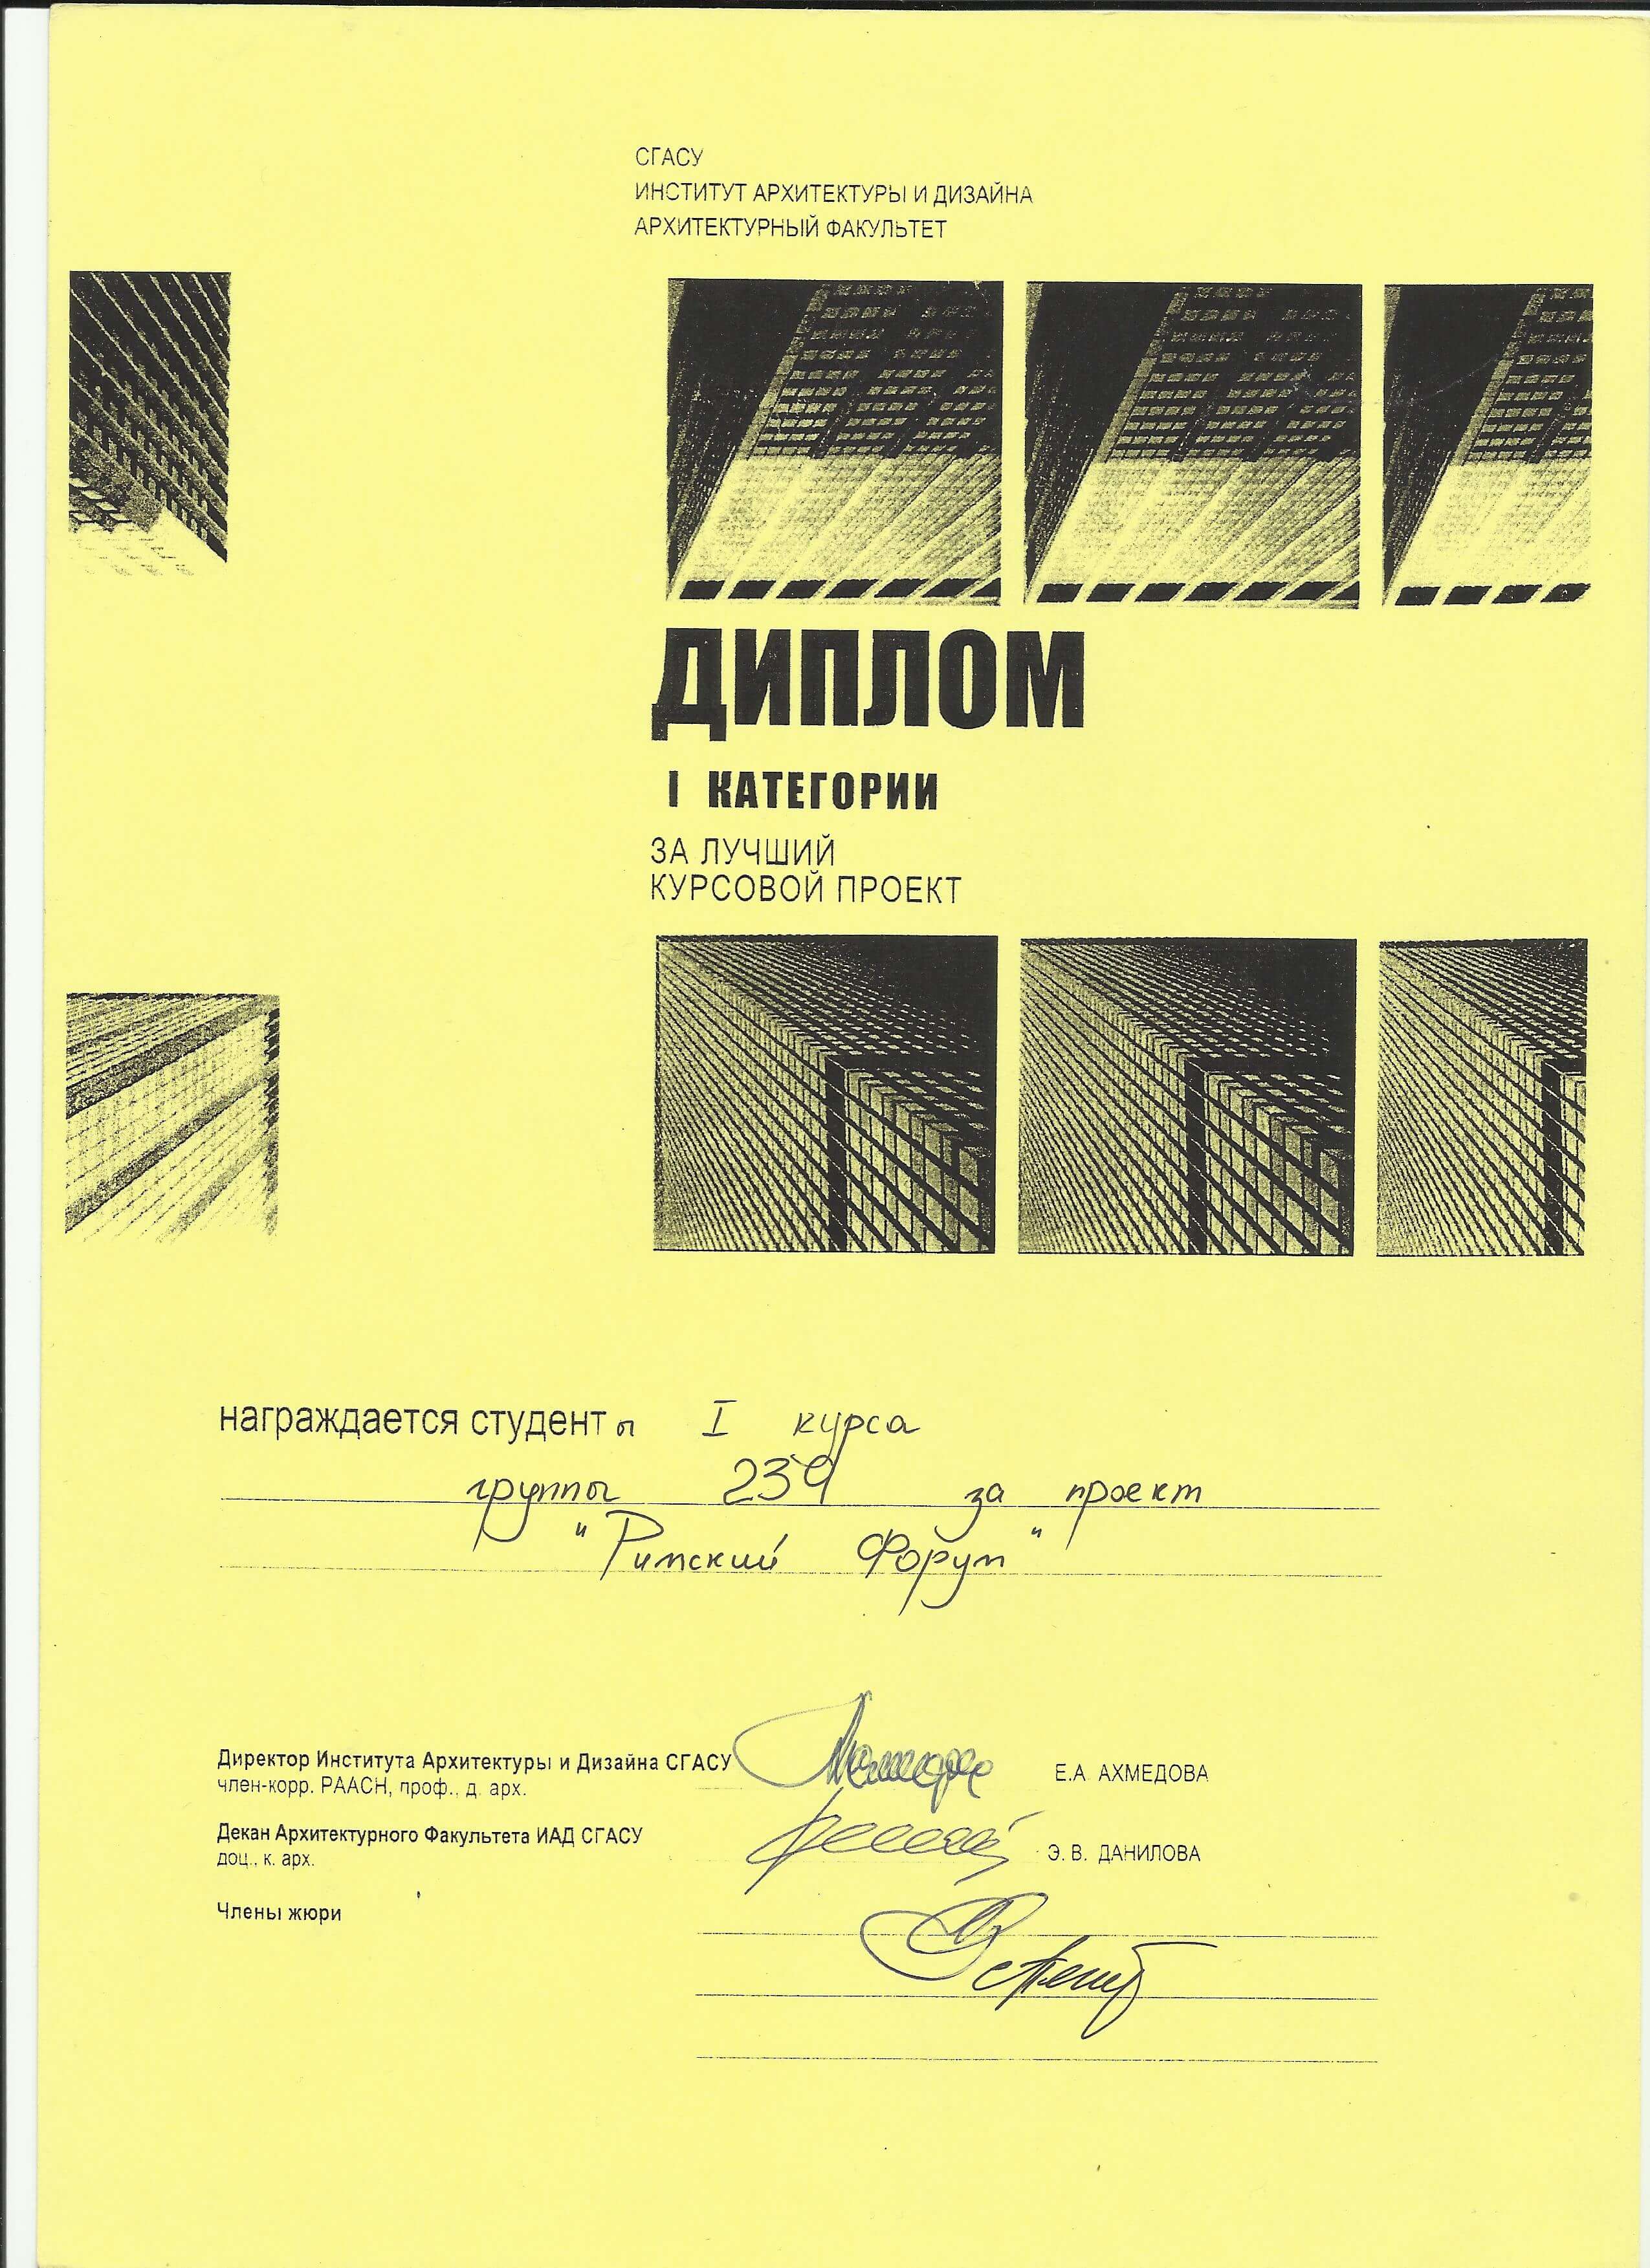 СГАСУ
ИНСТИТУТ АРХИТЕКТУРЫ И ДИЗАЙНА
АРХИТЕКТУРНЫЙ ФАКУЛЬТЕТ
ДИПЛОМ
I КАТЕГОРИИ
ЗА ЛУЧШИЙ
КУРСОВОЙ ПРОЕКТ
награждается студенты I курса
группы 239 за проект
"Римский Форум"
Директор Института Архитектуры и Дизайна СГАСУ
член-корр. РААСН, проф., д. арх.
Е.А. АХМЕДОВА
Декан Архитектурного Факультета ИАД СГАСУ
доц., к. арх.
Э. В. ДАНИЛОВА
Члены жюри